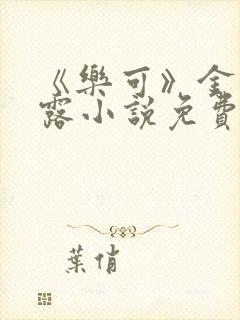 《樂可》全
露小說免費
葉俏